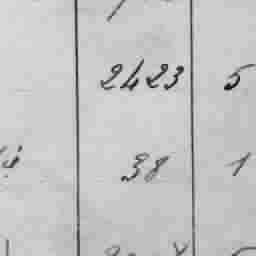 2423 5
38 1